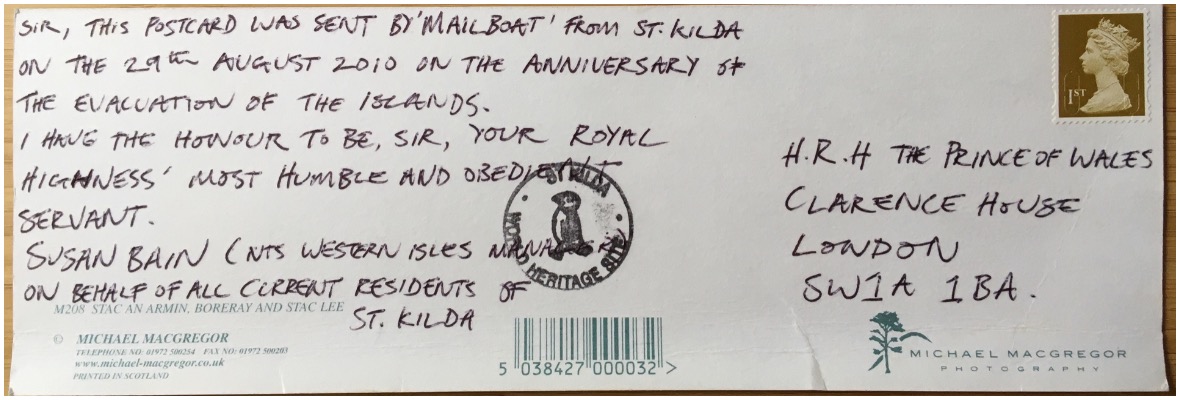 SIR, THIS POSTCARD WAS SENT BY 'MAILBOAT' FROM ST. KILDA
ON THE 29th AUGUST 2010 ON THE ANNIVERSARY OF
THE EVACUATION OF THE ISLANDS.
I HAVE THE HONOUR TO BE, SIR, YOUR ROYAL
HIGHNESS' MOST HUMBLE AND OBEDIENT
SERVANT.
SUSAN BAIN (NTS WESTERN ISLES MANAGER)
ON BEHALF OF ALL CURRENT RESIDENTS OF
ST. KILDA
ST KILDA
WORLD HERITAGE SITE
M208 STAC AN ARMIN, BORERAY AND STAC LEE
© MICHAEL MACGREGOR
TELEPHONE NO: 01972 500254 FAX NO: 01972 500203
www.michael-macgregor.co.uk
PRINTED IN SCOTLAND
5 038427 000032 >
1ST
H.R.H THE PRINCE OF WALES
CLARENCE HOUSE
LONDON
SW1A 1BA.
MICHAEL MACGREGOR
PHOTOGRAPHY